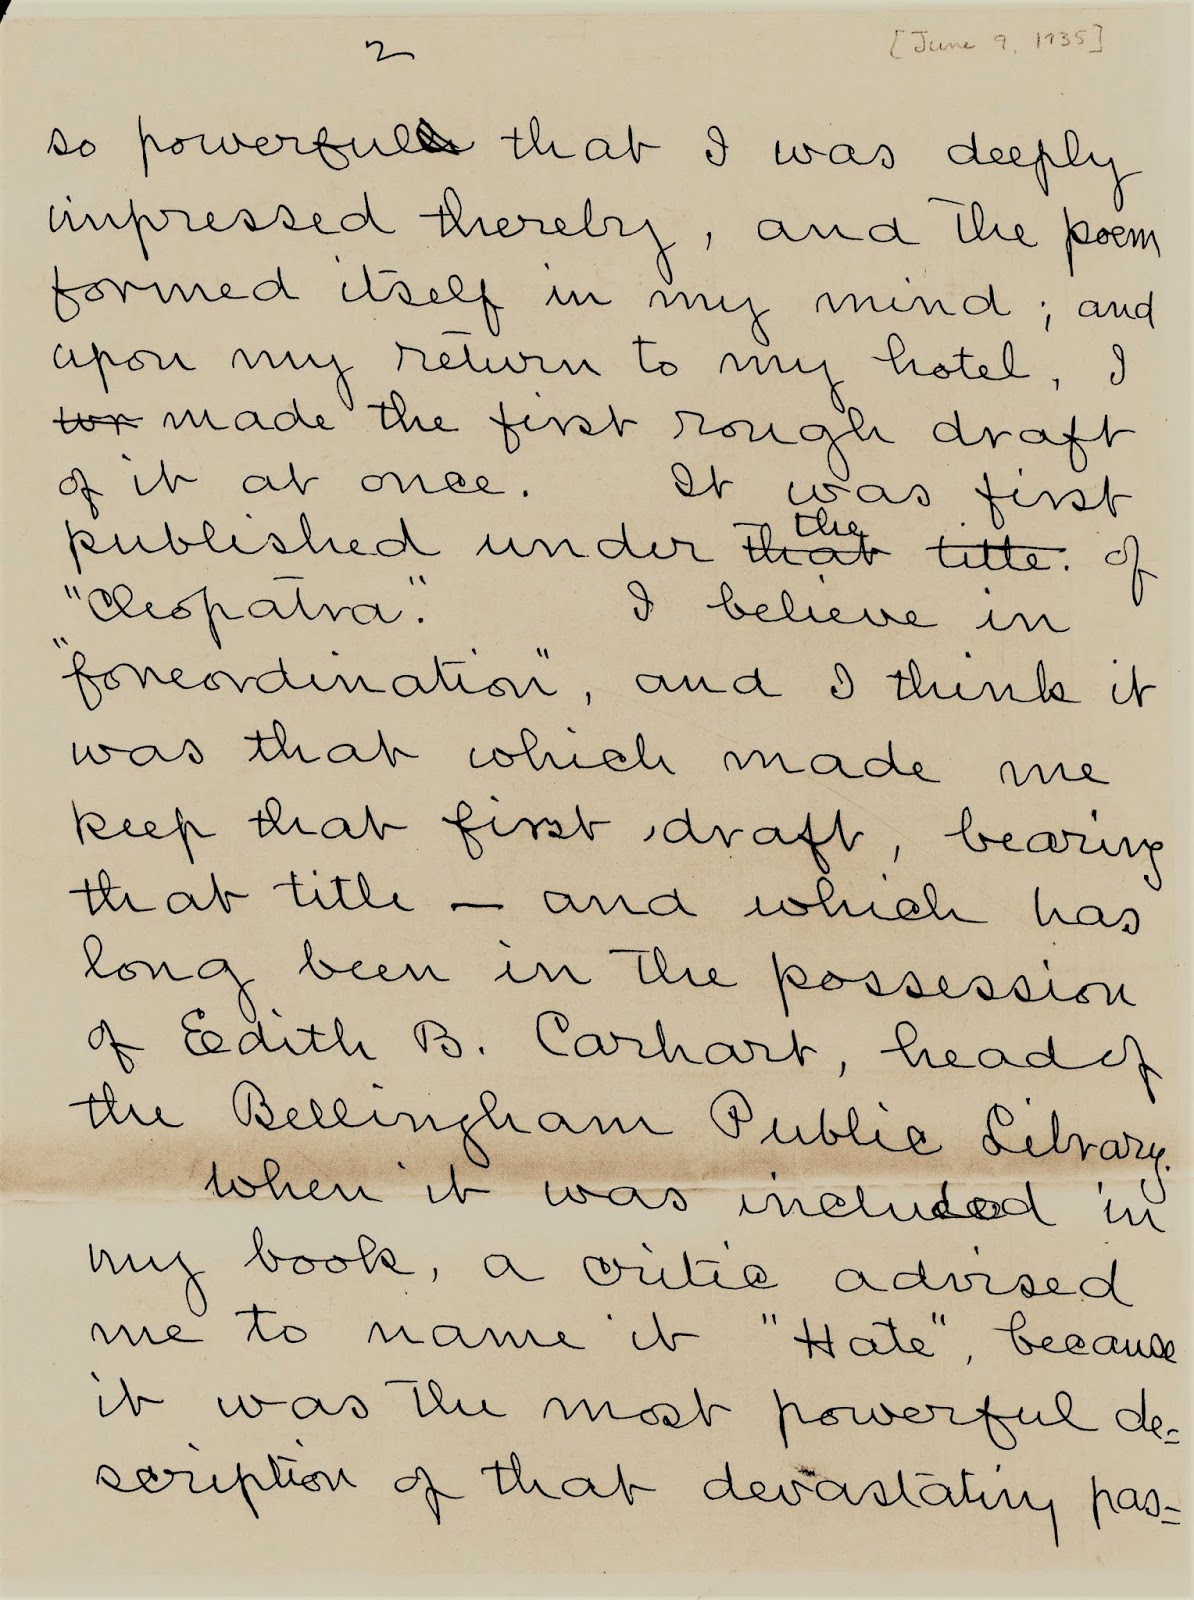 2
[June 9, 1935]
so powerful that I was deeply
impressed thereby, and the poem
formed itself in my mind; and
upon my return to my hotel, I
wr made the first rough draft
of it at once. It was first
the
published under that title. of
"Cleopatra". I believe in
"foreordination", and I think it
was that which made me
keep that first draft, bearing
that title — and which has
long been in the possession
of Edith B. Carhart, head of
the Bellingham Public Library.
When it was included in
my book, a critic advised
me to name it "Hate", because
it was the most powerful de=
scription of that devastating pas=